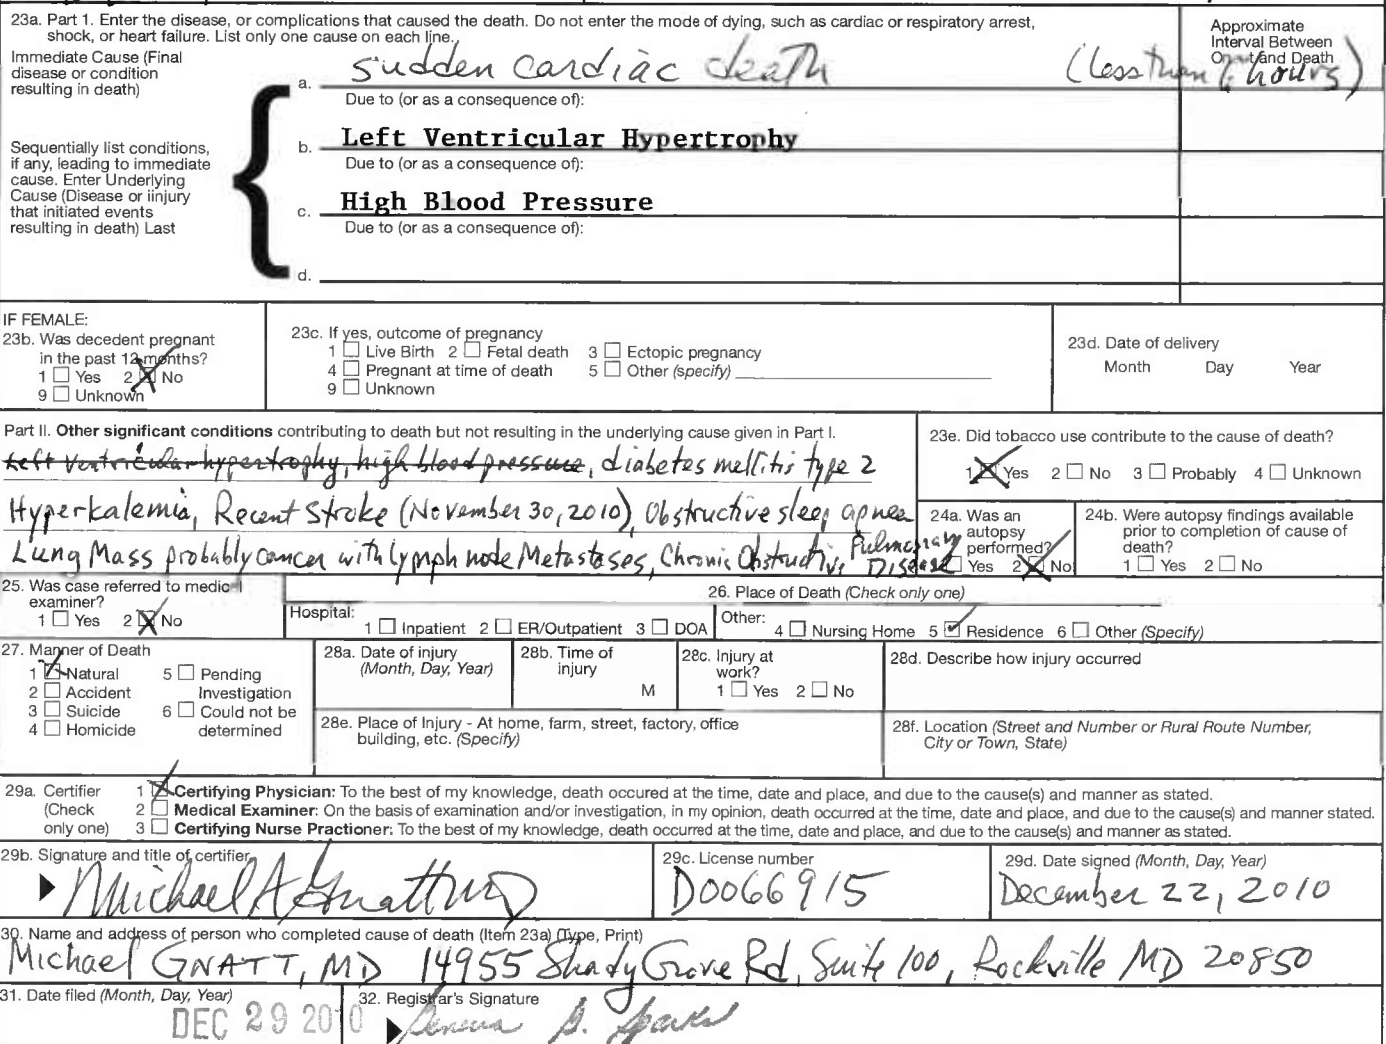 23a. Part 1. Enter the disease, or complications that caused the death. Do not enter the mode of dying, such as cardiac or respiratory arrest,
shock, or heart failure. List only one cause on each line.
Approximate
Interval Between
Onset and Death
Immediate Cause (Final
disease or condition
resulting in death)
a. sudden cardiac death (less than hours)
Due to (or as a consequence of):
Sequentially list conditions,
if any, leading to immediate
cause. Enter Underlying
Cause (Disease or iinjury
that initiated events
resulting in death) Last
b. Left Ventricular Hypertrophy
Due to (or as a consequence of):
c. High Blood Pressure
Due to (or as a consequence of):
d.
IF FEMALE:
23b. Was decedent pregnant
in the past 12 months?
1 Yes 2 No
9 Unknown
23c. If yes, outcome of pregnancy
1 Live Birth 2 Fetal death 3 Ectopic pregnancy
4 Pregnant at time of death 5 Other (specify)
9 Unknown
23d. Date of delivery
Month Day Year
Part II. Other significant conditions contributing to death but not resulting in the underlying cause given in Part I.
Left Ventricular hypertrophy, high blood pressure, diabetes mellitis type 2
Hyperkalemia, Recent Stroke (November 30, 2010), Obstructive sleep apnea
Lung Mass probably cancer with lymph node Metastases, Chronic Obstructive Pulmonary Disease
23e. Did tobacco use contribute to the cause of death?
1 Yes 2 No 3 Probably 4 Unknown
24a. Was an
autopsy
performed?
Yes 2 No
24b. Were autopsy findings available
prior to completion of cause of
death?
1 Yes 2 No
25. Was case referred to medical
examiner?
1 Yes 2 No
26. Place of Death (Check only one)
Hospital: 1 Inpatient 2 ER/Outpatient 3 DOA
Other: 4 Nursing Home 5 Residence 6 Other (Specify)
27. Manner of Death
1 Natural 5 Pending
2 Accident Investigation
3 Suicide 6 Could not be
4 Homicide determined
28a. Date of injury
(Month, Day, Year)
28b. Time of
injury
M
28c. Injury at
work?
1 Yes 2 No
28d. Describe how injury occurred
28e. Place of Injury - At home, farm, street, factory, office
building, etc. (Specify)
28f. Location (Street and Number or Rural Route Number,
City or Town, State)
29a. Certifier
(Check
only one)
1 Certifying Physician: To the best of my knowledge, death occured at the time, date and place, and due to the cause(s) and manner as stated.
2 Medical Examiner: On the basis of examination and/or investigation, in my opinion, death occurred at the time, date and place, and due to the cause(s) and manner stated.
3 Certifying Nurse Practioner: To the best of my knowledge, death occurred at the time, date and place, and due to the cause(s) and manner as stated.
29b. Signature and title of certifier
Michael A Gnatt MD
29c. License number
D0066915
29d. Date signed (Month, Day, Year)
December 22, 2010
30. Name and address of person who completed cause of death (Item 23a) (Type, Print)
Michael GNATT, MD 14955 Shady Grove Rd, Suite 100, Rockville MD 20850
31. Date filed (Month, Day, Year)
DEC 29 2010
32. Registrar's Signature